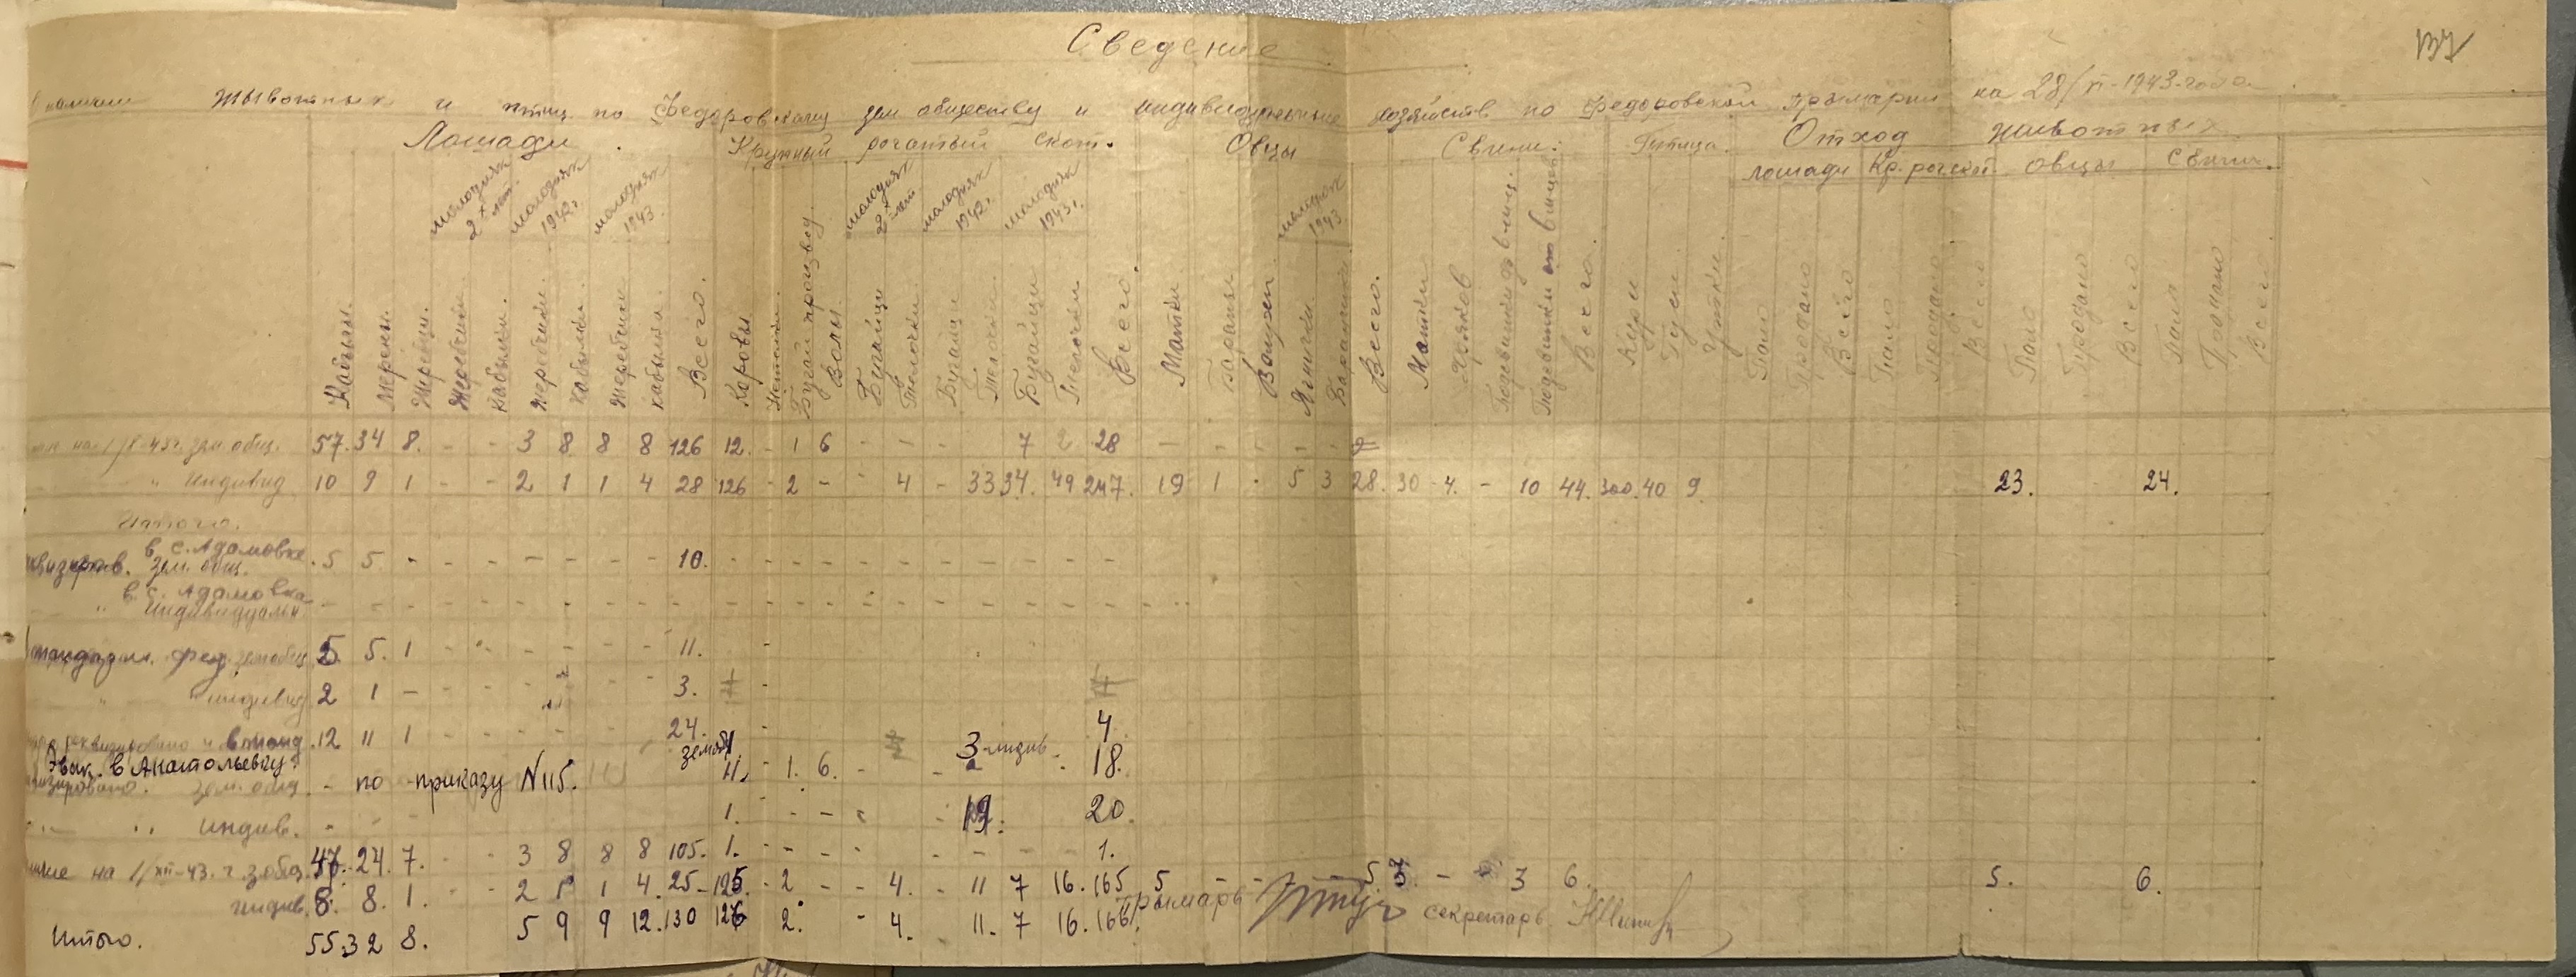 Сведение
о наличии животных и птиц по Федоровскому зем обществу и индивидуальных хозяйств по Федоровской Примарии на 28/XI-1943-года
137
Лошади. Крупный рогатый скот. Овцы Свиньи. Птица. Отход животных
лошади Кр. рог. скот овцы Свиньи.
молодняк 2х лет. молодняк 1942г. молодняк 1943. молодняк 2х лет молодняк 1942г. молодняк 1943г. молодняк 1943
Кабылы. Мерены. Жеребцы. Жеребчики. Кабылки. Жеребчики. Кабылки. Жеребчики кабылки. Всего. Коровы Нетели. Бугай производ. Волы. Бугайци Телочки. Бугайци Телочки. Бугайци Телочки Всего. Матки. Бараны. Валухи. Ягнички Баранчики. Всего. Матки Хряков Всего. Куры Гуси. Утки. Пало Продано Всего Пало Продано Всего Пало Продано Всего Пало Продано Всего.
на 1/8-43г. зем общ. 57. 34 8. - - 3 8 8 8 126 12. - 1 6 - 1 - 7 2 28 - - - - -
" Индивид 10 9 1 - - 2 1 1 4 28 126 - 2 - - 4 - 33 34. 49 247. 19 1 - 5 3 28. 30 4. - 10 44. 300. 40 9. 23. 24.
Итого.
в с. Адамовке
зем. общ. 5 5. - - - - - - - 10. - - - - - - - - - -
в с. Адамовка
" Индивидуальн. - - - - - - - - - - - - - - - - - - - - - -
фед. зем общ. 5. 5. 1 - - - - - - 11. -
" индивид 2 1 - - - - - 3. -
реквизировано и 12 11 1 - - - - - - 24. - 4.
Эвак. в Анатольевку зем общ 3-индив.
зем. общ. - по приказу N 115. 11. - 1. 6. - - 18.
" " Индив. - - 1. - - - - 19. 20.
на 1/XII-43. г. з.общ. 47. 24. 7. - - 3 8 8 8 105. 1. - - - - - - - 1.
индив. 8. 8. 1. - - 2 1 1 4. 25 125 - 2 - - 4. - 11 7 16. 165 5 - - - - 5. 3. - 3 6. 5. 6.
Итого. 55. 32 8. 5 9 9 12. 130 126 2. - 4. 11. 7 16. 166.
Примарь секретарь